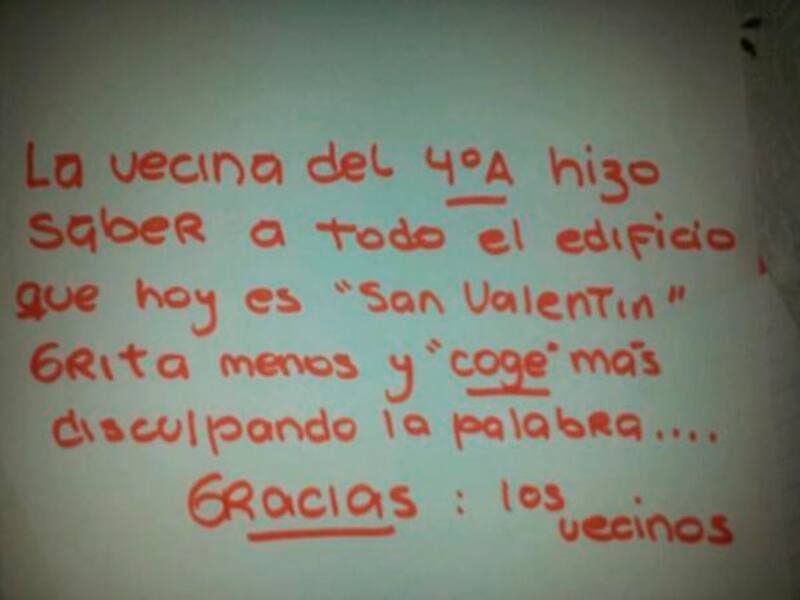 La vecina del 4ºA hizo
saber a todo el edificio
que hoy es "San Valentin"
Grita menos y "coge" más
disculpando la palabra....
Gracias : los
vecinos